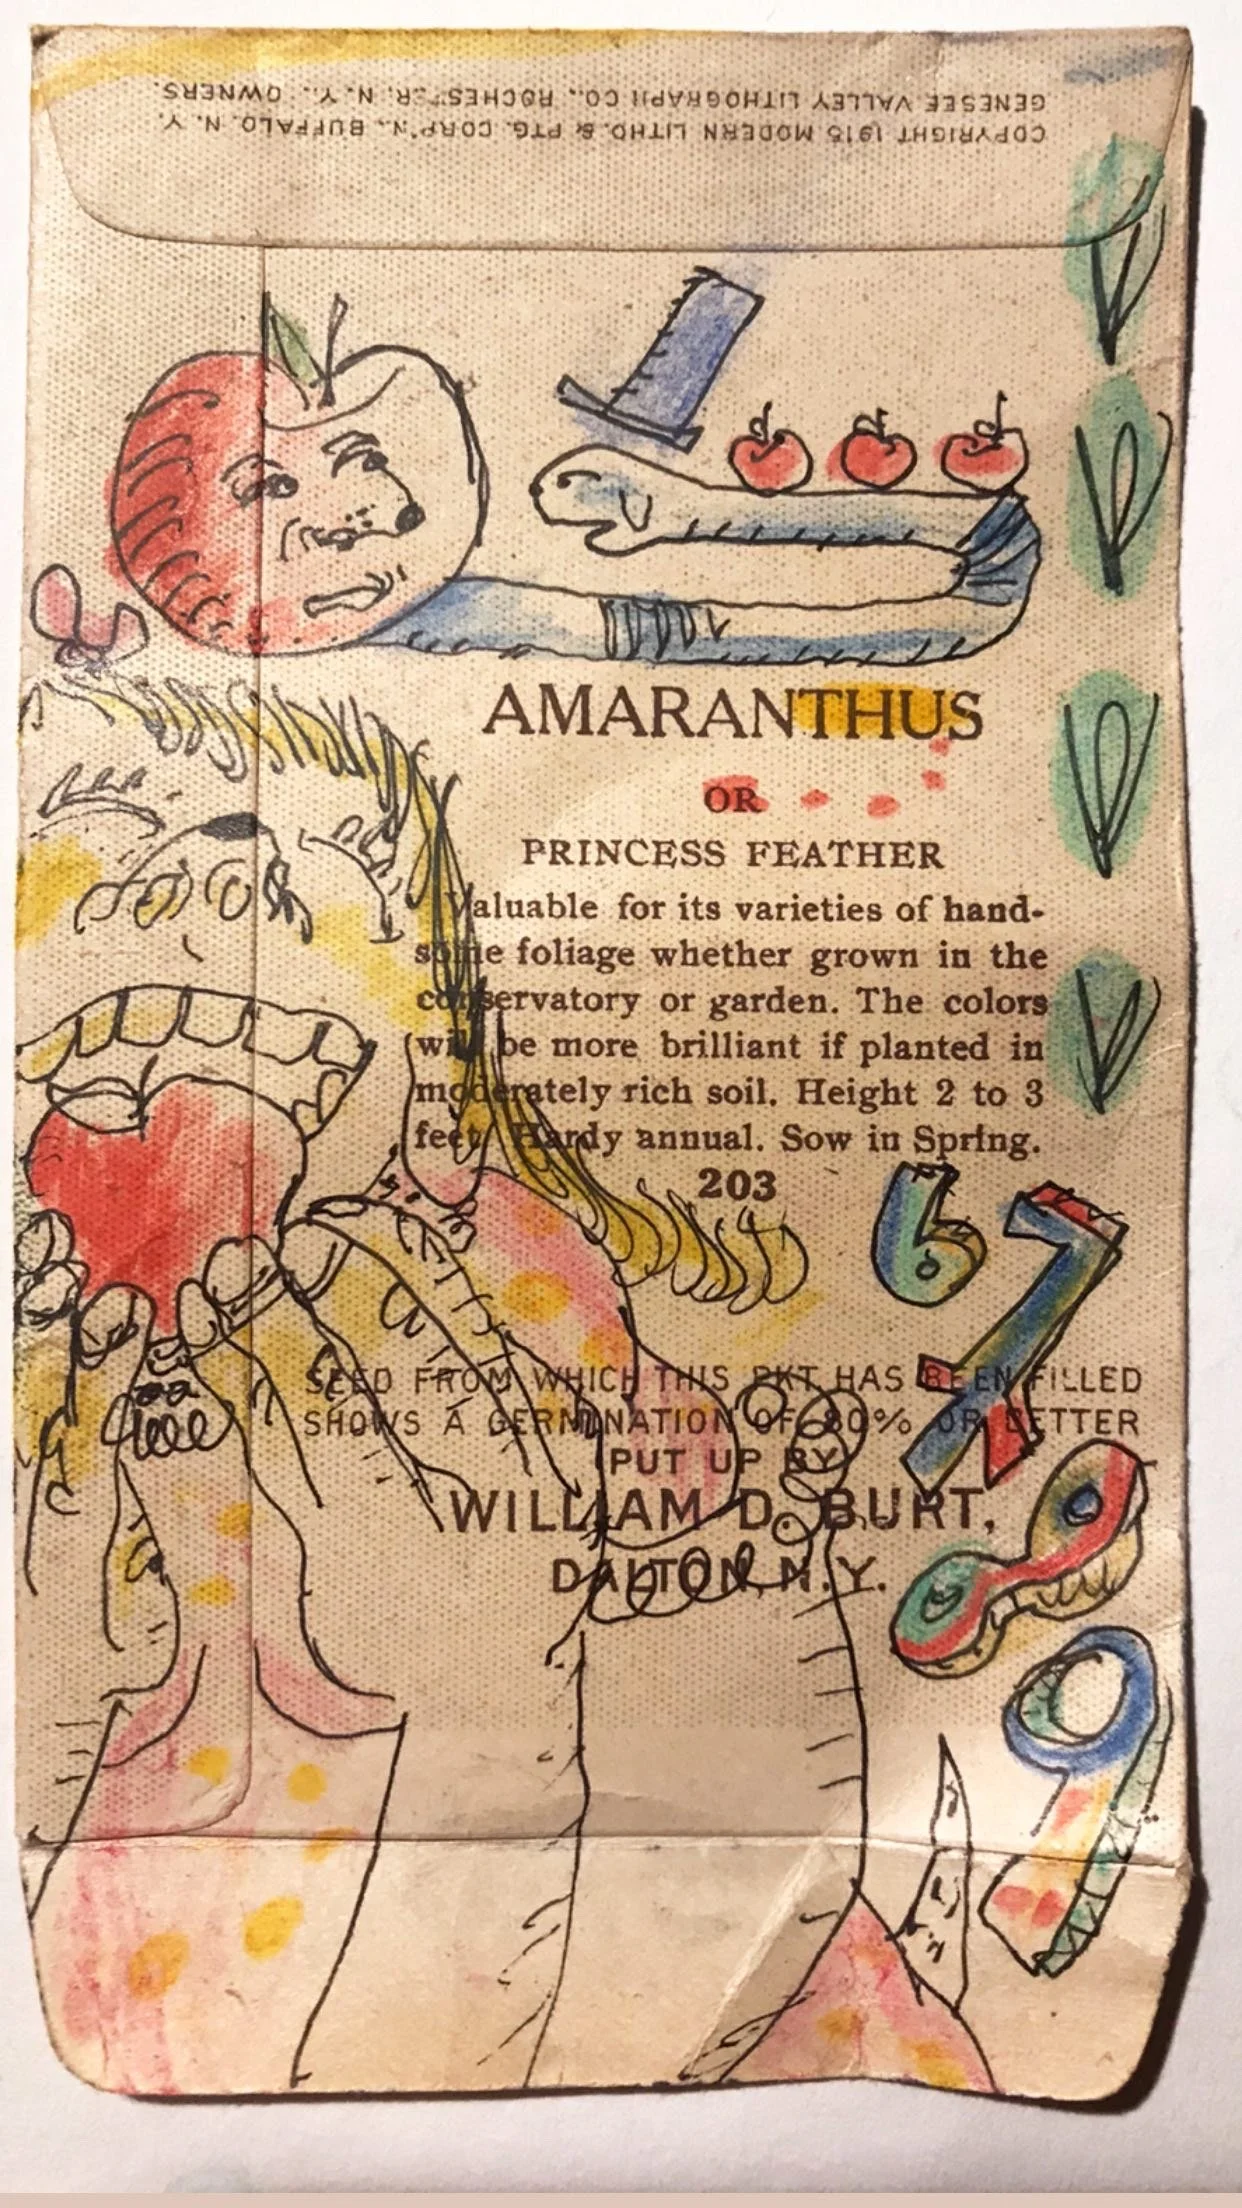 COPYRIGHT 1915 MODERN LITHO. & PTG. CORP'N., BUFFALO, N. Y.
GENESEE VALLEY LITHOGRAPH CO., ROCHESTER, N. Y., OWNERS.
AMARANTHUS
OR
PRINCESS FEATHER
Valuable for its varieties of hand-
some foliage whether grown in the
conservatory or garden. The colors
will be more brilliant if planted in
moderately rich soil. Height 2 to 3
feet. Hardy annual. Sow in Spring.
203
6
7
SEED FROM WHICH THIS PKT HAS BEEN FILLED
SHOWS A GERMINATION OF 80% OR BETTER
PUT UP BY
WILLIAM D. BURT,
DALTON, N.Y.
8
9